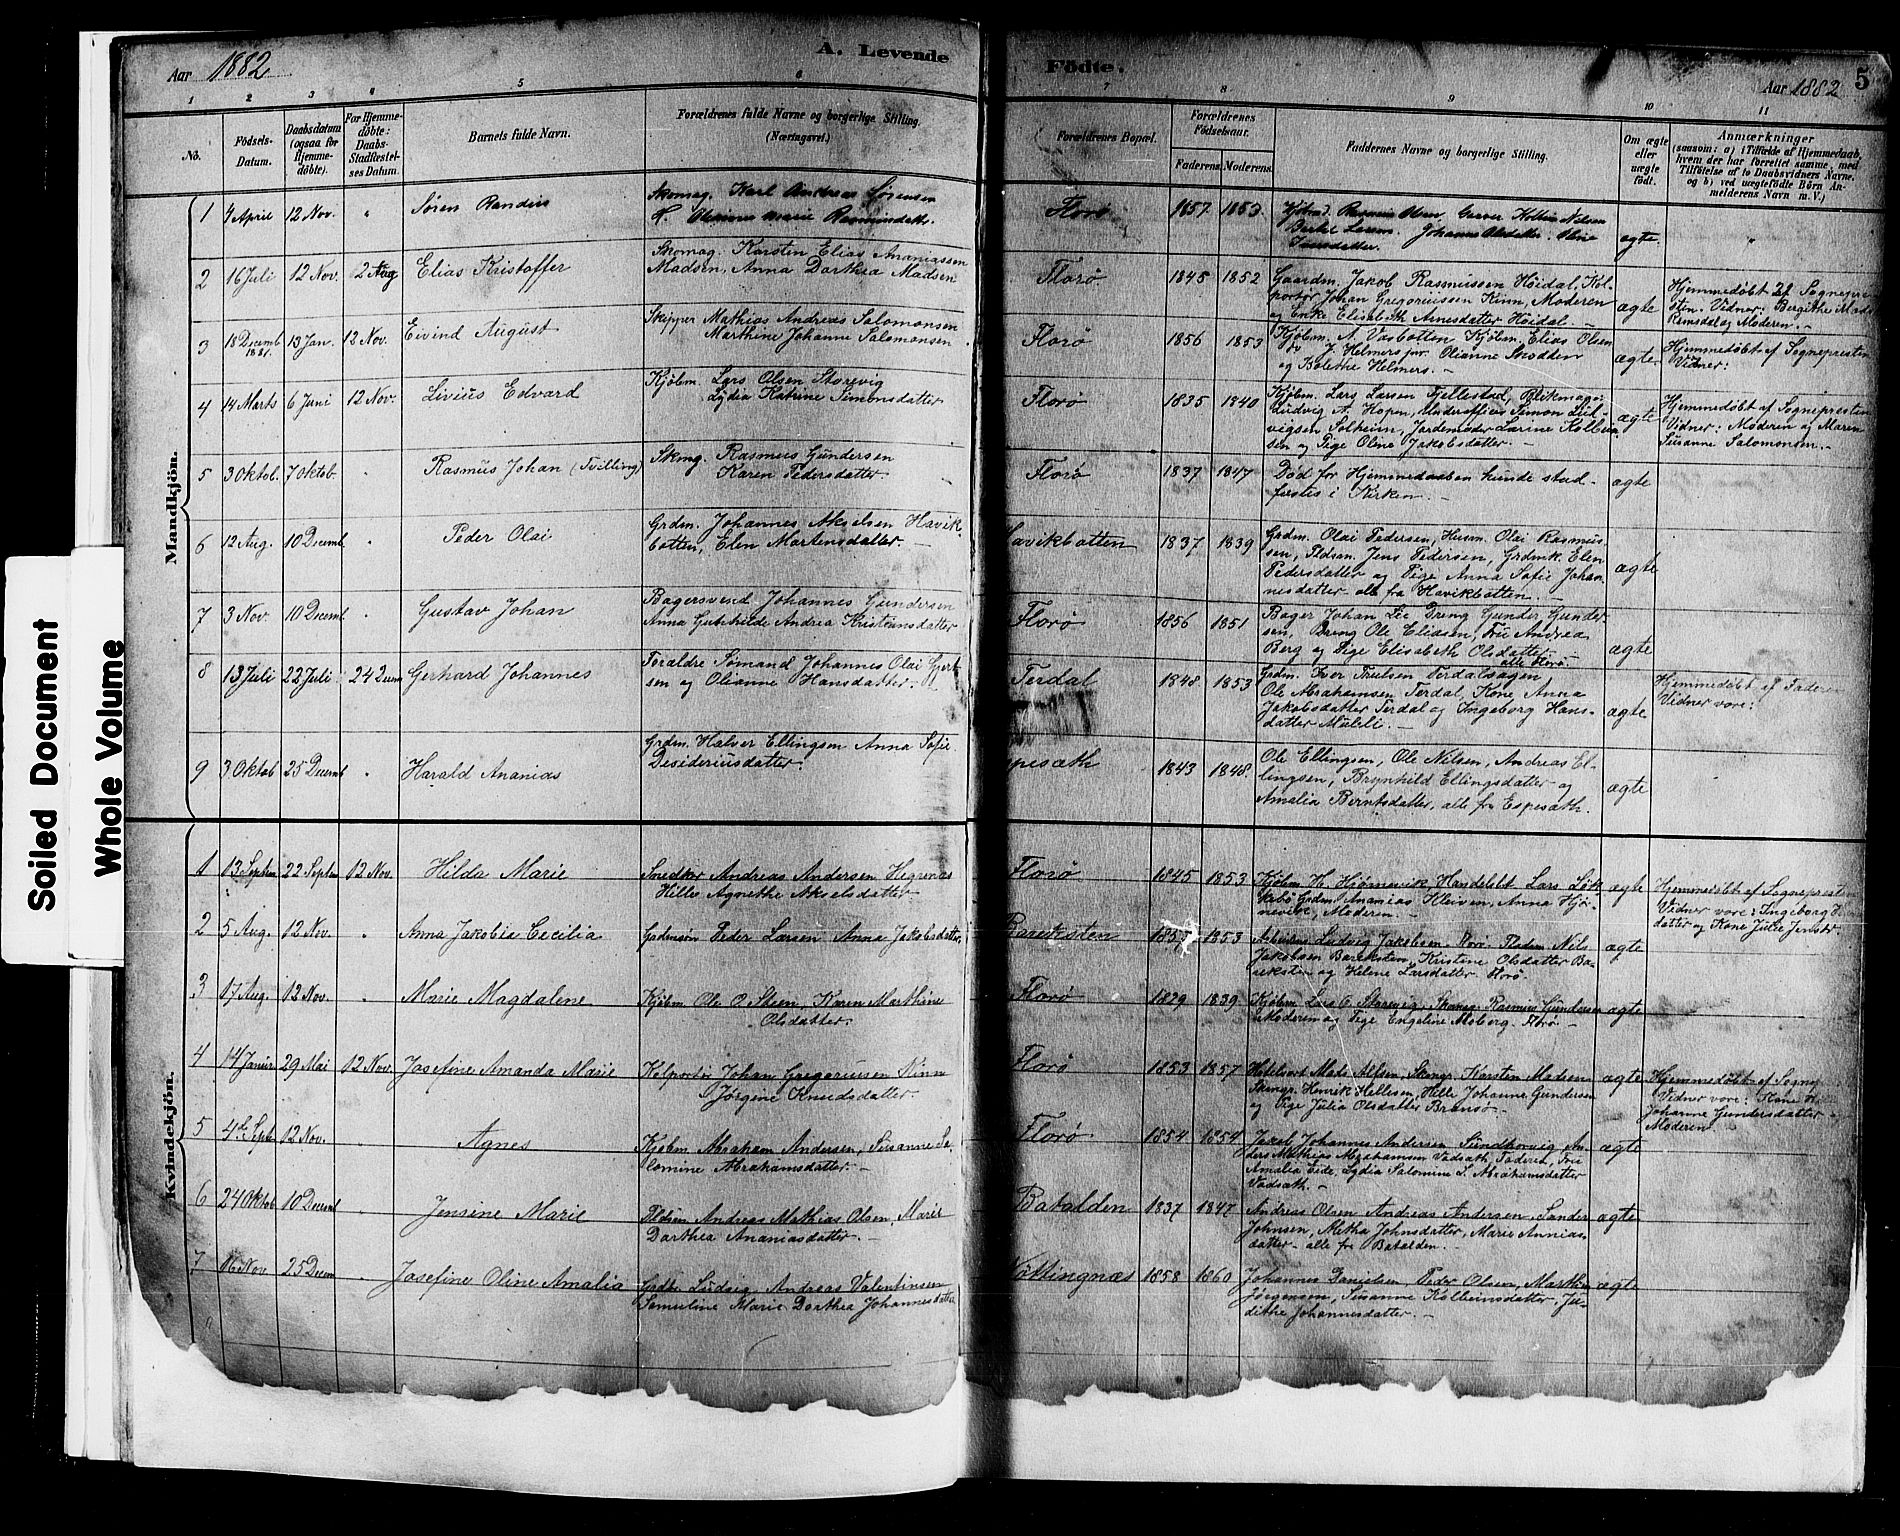 Soiled Document
Whole Volume
Aar 1882
A. Levende
Födte.
Aar 1882 5
1 2 3 4 5 6 7 8 9 10 11
No.
Födsels-Datum.
Daabsdatum (ogsaa for Hjemmedöbte).
For Hjemmedöbte: Daabs-Stadfæstelses Datum.
Barnets fulde Navn.
Forældrenes fulde Navne og borgerlige Stilling.
(Næringsvei.)
Forældrenes Bopæl.
Forældrenes Födselsaar.
Faderens Moderens
Faddernes Navne og borgerlige Stilling.
Om ægte eller uægte födt.
Anmærkninger
(saasom: a) i Tilfælde af Hjemmedaab, hvem der har forrettet samme, med Tilföielse af to Daabsvidners Navne, og b) ved uægtefödte Börn Anmelderens Navn m. V.)
Mandkjön.
1 4 April 12 Nov. " Søren Randius
Skomag. Karl Andreas Sørensen
K. Oleanna Marie Rasmusdatt.
Florø 1857. 1853.
Kjøbmd. Rasmus Olsen, Garver Kolbein Nilsen
Johanne Olsdatter. Oline
ægte "
2 16 Juli 12 Nov. 2 Aug Elias Kristoffer
Skomag. Karsten Elias Ananiassen
Madsen, Anna Dorthea Madsen
Florø 1845 1852
Gaardm. Jakob Rasmussen Höidal, Kol-
portör Johan Gregoriussen Kinn, Moderen
og Enke Elisabeth Arnesdatter Höidal. —
ægte
Hjemmedøbt af Sognepre-
sten. Vidner: Bergithe Mads
Remsdal og Moderen. —
3 18 Decemb 1881. 13 Jan. 12 Nov. Eivind August
Skipper Mathias Andreas Salomonsen
Marthine Johanne Salomonsen
Florø 1856 1853
Kjøbm. A. Vasbotten Kjøbm. Elias Olsen
J. Helmers jnr. Olianne Snodden
og Bolethe Helmers. —
ægte.
Hjemmedøbt af Sognepresten
Vidner:
4 14 Marts 6 Juni 12 Nov. Livius Edvard
Kjøbm. Lars Olsen Storevig
Lydia Katrine Simonsdatter
Florø 1835 1840
Kjøbm. Lars Larsen Fjellestad, Blikmager
Ludvig A. Hopen, Underofficer Simon Lud-
vigsen Solheim, Jordemoder Larine Kolbein-
sen og Pige Oline Jakobsdatter. —
ægte
Hjemmedøbt af Sognepresten
Vidner: Moderen og Maren
Susanne Salomonsen. —
5 3 Oktob. 7 Oktob. " Rasmus Johan (Tvilling)
Skmg. Rasmus Gundersen
Karen Pedersdatter.
Florø 1837 1847
Död før Hjemmedaaben kunde stad-
fæstes i Kirken. —
ægte
6 12 Aug. 10 Decemb. " Peder Olai
Grdm. Johannes Akselsen Havik-
botten, Elen Martensdatter. —
Havikbotten 1837 1839
Grdm. Olai Pedersen, Husm. Olai Rasmus-
sen, Pldsm. Jens Pedersen, Grdmk. Elen
Pedersdatter og Pige Anna Sofie Johan-
nesdatter, alle fra Havikbotten. —
ægte
7 3 Nov. 10 Decemb. " Gustav Johan
Bagersvend Johannes Gundersen
Anna Gunhilde Andrea Kristensdatter
Florø 1856 1851
Bager Johan Lie Dreng Gunder Gunder-
sen, Dreng Ole Eliasen, Fru Andrea
Berg og Pige Elisabeth Olsdatter
alle Florø. —
ægte
8 13 Juli 22 Juli 24 Decm Gerhard Johannes
Foraldre Sømand Johannes Olai Gert-
sen og Olianne Hansdatter. —
Terdal 1848 1853
Grdm. Iver Trulsen Terdalsøgen
Ole Abrahamsen Terdal, Kone Anna
Jakobsdatter Terdal og Ingeborg Hans-
datter Mükli. —
ægte
Hjemmedøbt af Faderen
Vidner vore:
9 3 Oktob 25 Decemb " Harald Ananias
Grdm. Halver Ellingsen Anna Sofie
Desideriusdatter.
pesæth 1843 1848
Ole Ellingsen, Ole Nilsen, Andreas El-
lingsen, Brynhild Ellingsdatter og
Amalia Berntsdatter, alle fra Espesæth.
ægte
Kvindekjön.
1 13 Septem 22 Septem 12 Nov. Hilda Marie
Snedker Andreas Andersen Hegrenæs
Hille Agnethe Akselsdatter
Florø 1845 1853
Kjøbm H. Hjørnevik Handelsbt. Lars Løk-
kebø Grdm. Ananias Kleiven, Anna Hjør-
nevik, Moderen. —
ægte
Hjemmedøbt af Sognepresten
Vidner vore: Ingeborg
datter og Kone Julie Jensen
2 5 Aug. 12 Nov. " Anna Jakobia Cecilia
Grdmsøn Peder Larsen Anna Jakobsdatter
Bareksten 185 1853
Arbeidsm. Ludvig Jakobsen Florø. Pladsm Nils
Jakobsen Bareksten, Kristine Olsdatter Ba-
reksten og Helene Larsdatter Florø.
ægte
3 17 Aug. 12 Nov. " Marie Magdalene
Kjøbm. Ole O. Steen, Karen Marthine
Olsdatter.
Florø 1829 1839
Kjøbm Lars O. Storevig, Skomag. Rasmus Gundersen
Moderen og Pige Engeline Moberg. Florø —
ægte
4 14 Januar 29 Mai 12 Nov. Josefine Amanda Marie
Kolportør Johan Gregoriusen Kinn
Jørgine Knudsdatter.
Florø 1853 1857
Hotelvert Mads Alfsen, Skomgr. Karsten Madsen
Skomgr. Henrik Hellesen, Hille Johanne Gundersen
og Pige Julia Olsdatter Bransø. —
ægte
Hjemmedøbt af Sognep
Vidner vore: Kone
Johanne Gundersdatter
Moderen
5 4de Sept 12 Nov. Agnes
Kjøbm. Abraham Andersen, Susanne Sa-
lomine Abrahamsdatter. —
Florø. 1854 1854
Jakob Johannes Andersen Sundkorvig An-
ders Mathias Abrahamsen Vadsæth, Faderen, Fru
Amalia Eide, Lydia Salomine L. Abrahamsdatter
Vadsæth. —
ægte
6 24 Oktob 10 Decemb " Jensine Marie
Pldsm Andreas Mathias Olsen, Marie
Dorthea Ananiasdatter. —
Batalden 1837 1847
Andreas Olsen Andreas Andersen, Sander
Johnsen, Metha Johnsdatter, Marie Annias-
datter — alle fra Batalden. —
ægte
7 16 Nov 25 Decem " Josefine Oline Amalia
Grdbr Ludvig Andreas Valentinsen
Semuline Marie Dorthea Johannesdatter
Nøttingnæs 1858 1860
Johannes Danielsen Peder Olsen, Marthin
Jørgensen, Susanne Kolbeinsdatter, Ju-
dithe Johannesdatter. —
ægte